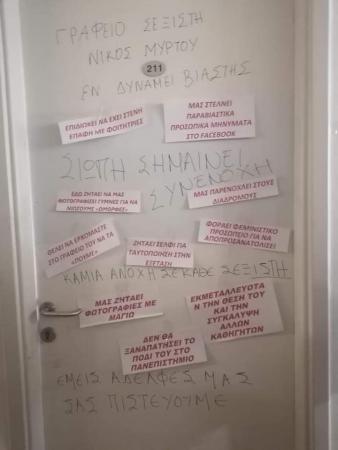 ΓΡΑΦΕΙΟ ΣΕΞΙΣΤΗ
ΝΙΚΟΣ ΜΥΡΤΟΥ
211
ΕΝ ΔΥΝΑΜΕΙ ΒΙΑΣΤΗΣ
ΕΠΙΔΙΩΚΕΙ ΝΑ ΕΧΕΙ ΣΤΕΝΗ
ΕΠΑΦΗ ΜΕ ΦΟΙΤΗΤΡΙΕΣ
ΜΑΣ ΣΤΕΛΝΕΙ
ΠΑΡΑΒΙΑΣΤΙΚΑ
ΠΡΟΣΩΠΙΚΑ ΜΗΝΥΜΑΤΑ
ΣΤΟ FACEBOOK
ΣΙΩΠΗ ΣΗΜΑΙΝΕΙ
ΣΥΝΕΝΟΧΗ
ΕΔΩ ΖΗΤΑΕΙ ΝΑ ΜΑΣ
ΦΩΤΟΓΡΑΦΙΣΕΙ ΓΥΜΝΕΣ ΓΙΑ ΝΑ
ΝΙΩΣΟΥΜΕ «ΟΜΟΡΦΕΣ»
ΜΑΣ ΠΑΡΕΝΟΧΛΕΙ ΣΤΟΥΣ
ΔΙΑΔΡΟΜΟΥΣ
ΘΕΛΕΙ ΝΑ ΕΡΧΟΜΑΣΤΕ
ΣΤΟ ΓΡΑΦΕΙΟ ΤΟΥ ΝΑ ΤΑ
«ΠΟΥΜΕ»
ΖΗΤΑΕΙ ΣΕΛΦΙ ΓΙΑ
ΤΑΥΤΟΠΟΙΗΣΗ ΣΤΗΝ
ΕΞΕΤΑΣΗ
ΦΟΡΑΕΙ ΦΕΜΙΝΙΣΤΙΚΟ
ΠΡΟΣΩΠΕΙΟ ΓΙΑ ΝΑ
ΑΠΟΠΡΟΣΑΝΑΤΟΛΙΣΕΙ
ΚΑΜΙΑ ΑΝΟΧΗ ΣΕ ΚΑΘΕ ΣΕΞΙΣΤΗ
ΜΑΣ ΖΗΤΑΕΙ
ΦΩΤΟΓΡΑΦΙΕΣ ΜΕ
ΜΑΓΙΩ
ΕΚΜΕΤΑΛΛΕΥΟΤΑ
Ν ΤΗΝ ΘΕΣΗ ΤΟΥ
ΚΑΙ ΤΗΝ
ΣΥΓΚΑΛΥΨΗ
ΑΛΛΩΝ
ΚΑΘΗΓΗΤΩΝ
ΔΕΝ ΘΑ
ΞΑΝΑΠΑΤΗΣΕΙ ΤΟ
ΠΟΔΙ ΤΟΥ ΣΤΟ
ΠΑΝΕΠΙΣΤΗΜΙΟ
ΕΜΕΙΣ ΑΔΕΛΦΕΣ ΜΑΣ
ΣΑΣ ΠΙΣΤΕΥΟΥΜΕ